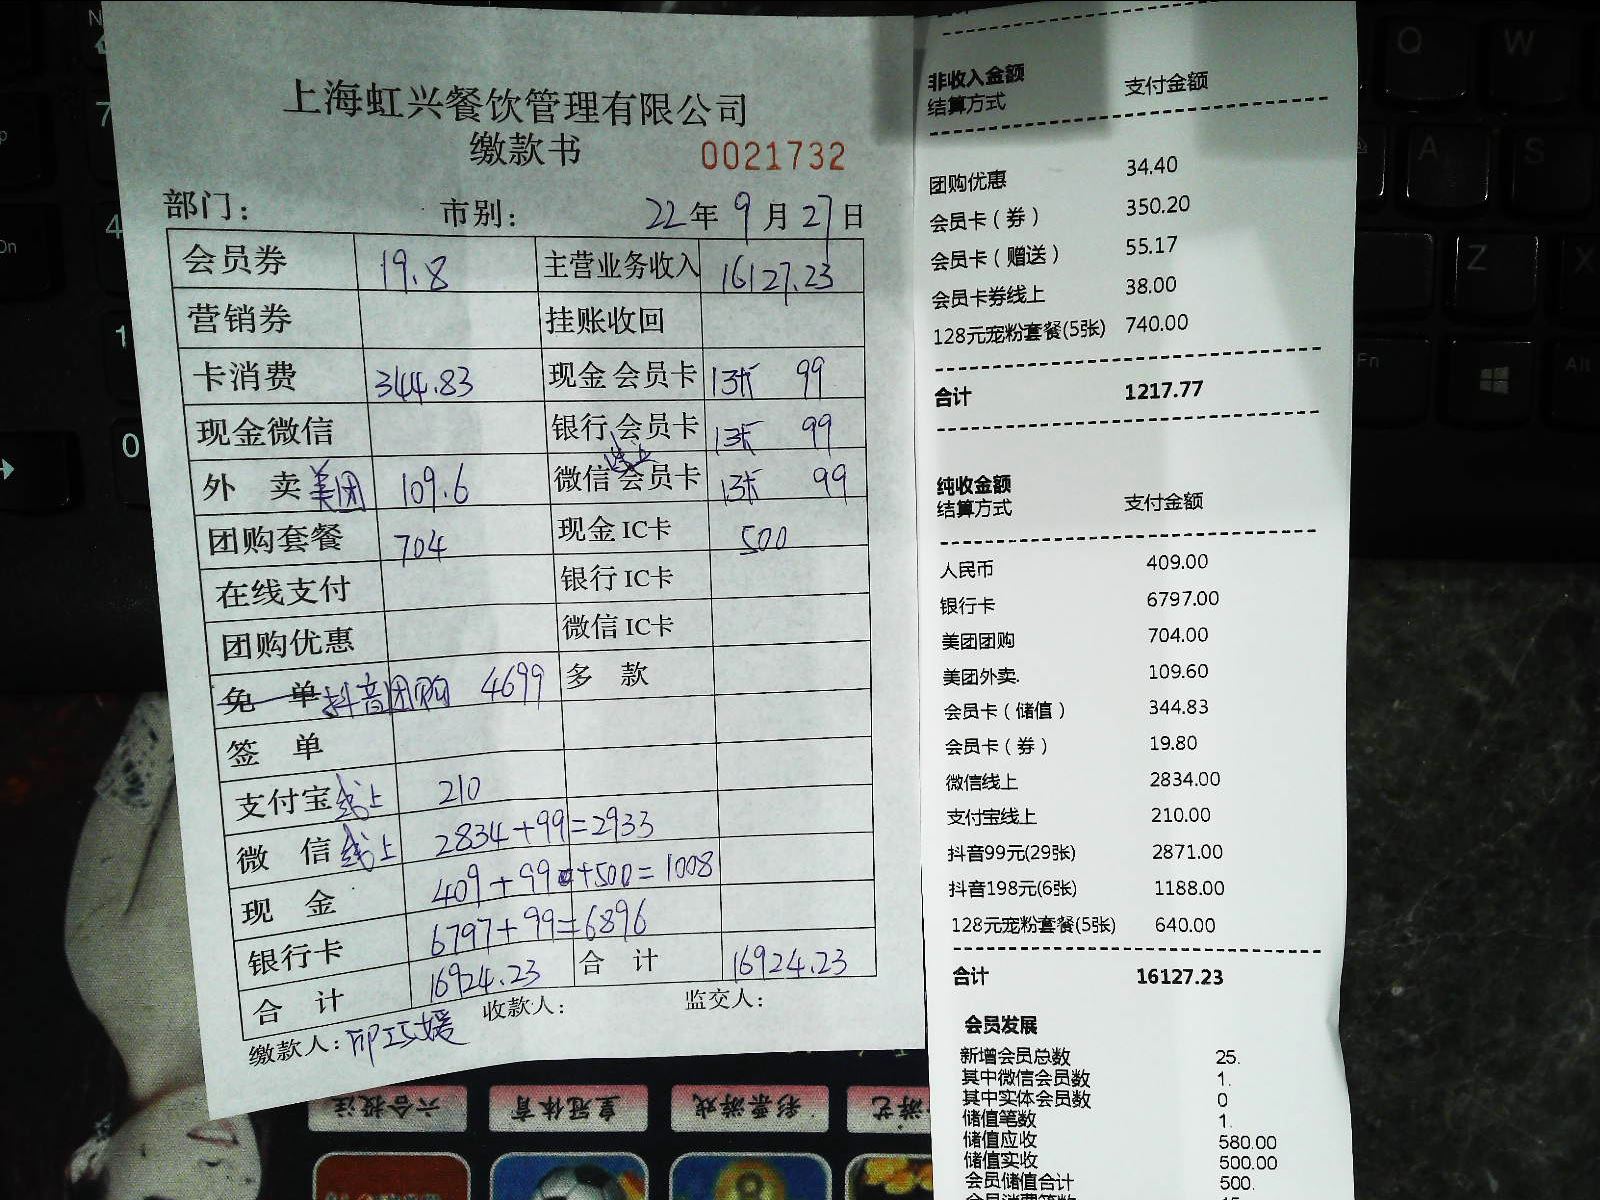 上海虹兴餐饮管理有限公司
缴款书 0021732
部门: 市别: 22年9月27日
会员券 19.8 主营业务收入 16127.23
营销券 挂账收回
卡消费 344.83 现金会员卡 1张 99
现金微信 银行会员卡 1张 99
外卖美团 109.6 微信线上会员卡 1张 99
团购套餐 704 现金IC卡 500
在线支付 银行IC卡
团购优惠 微信IC卡
免单抖音团购 4699 多款
签单
支付宝线上 210
微信线上 2834+99=2933
现金 409+99+500=1008
银行卡 6797+99=6896
合计 16924.23 合计 16924.23
缴款人: 收款人: 监交人:
非收入金额
结算方式 支付金额
团购优惠 34.40
会员卡(券) 350.20
会员卡(赠送) 55.17
会员卡券线上 38.00
128元宠粉套餐(5张) 740.00
合计 1217.77
纯收金额
结算方式 支付金额
人民币 409.00
银行卡 6797.00
美团团购 704.00
美团外卖. 109.60
会员卡(储值) 344.83
会员卡(券) 19.80
微信线上 2834.00
支付宝线上 210.00
抖音99元(29张) 2871.00
抖音198元(6张) 1188.00
128元宠粉套餐(5张) 640.00
合计 16127.23
会员发展
新增会员总数 25.
其中微信会员数 1.
其中实体会员数 0
储值笔数 1.
储值应收 580.00
储值实收 500.00
会员储值合计 500.
六合投注 皇冠体育 彩票游戏 游艺
Q W
A S
Z X
Fn Alt
7
4
1
0